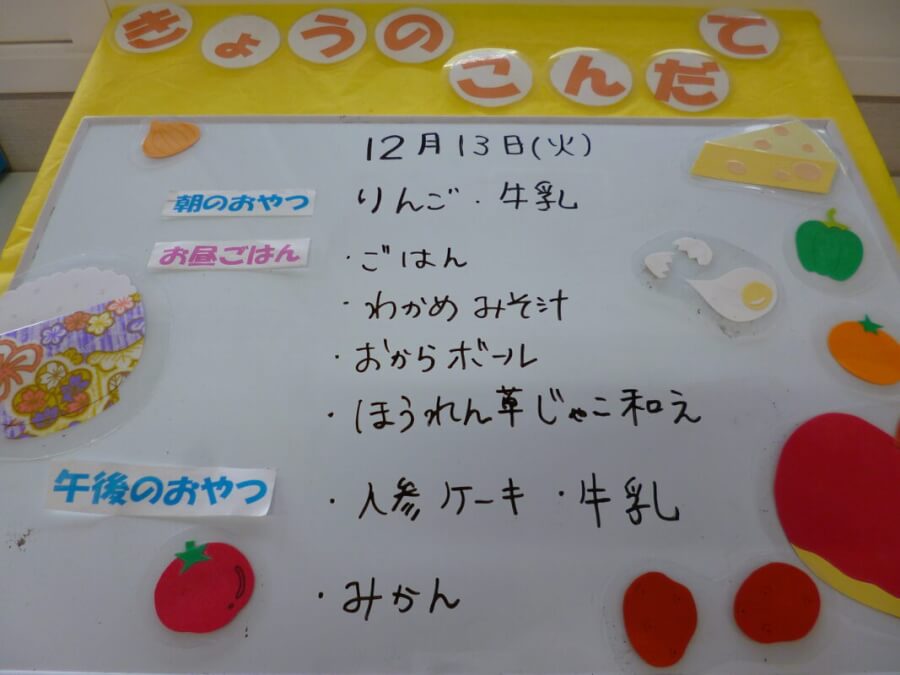 きょうの
こんだて
12月13日(火)
朝のおやつ りんご・牛乳
お昼ごはん ・ごはん
・わかめみそ汁
・おからボール
・ほうれん草じゃこ和え
午後のおやつ ・人参ケーキ ・牛乳
・みかん